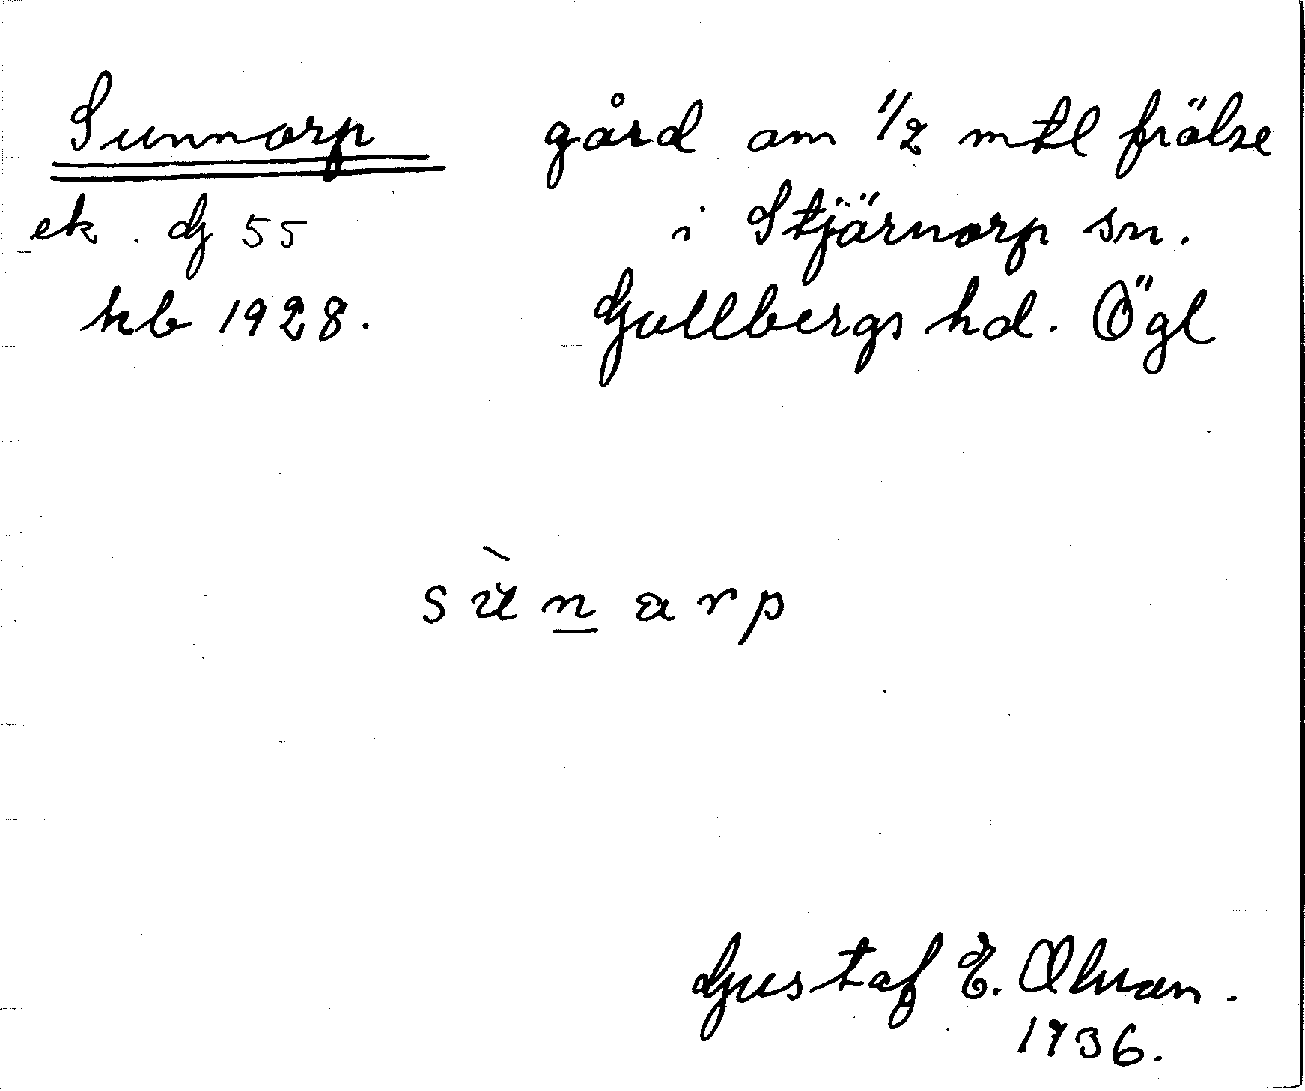 Sunnorp gård om 1/2 mtl frälse
ek. G 55 i Stjärnorp sn.
kb 1928. Gullbergs hd. Ögl
sùnarp
Gustaf E. Olman.
1936.